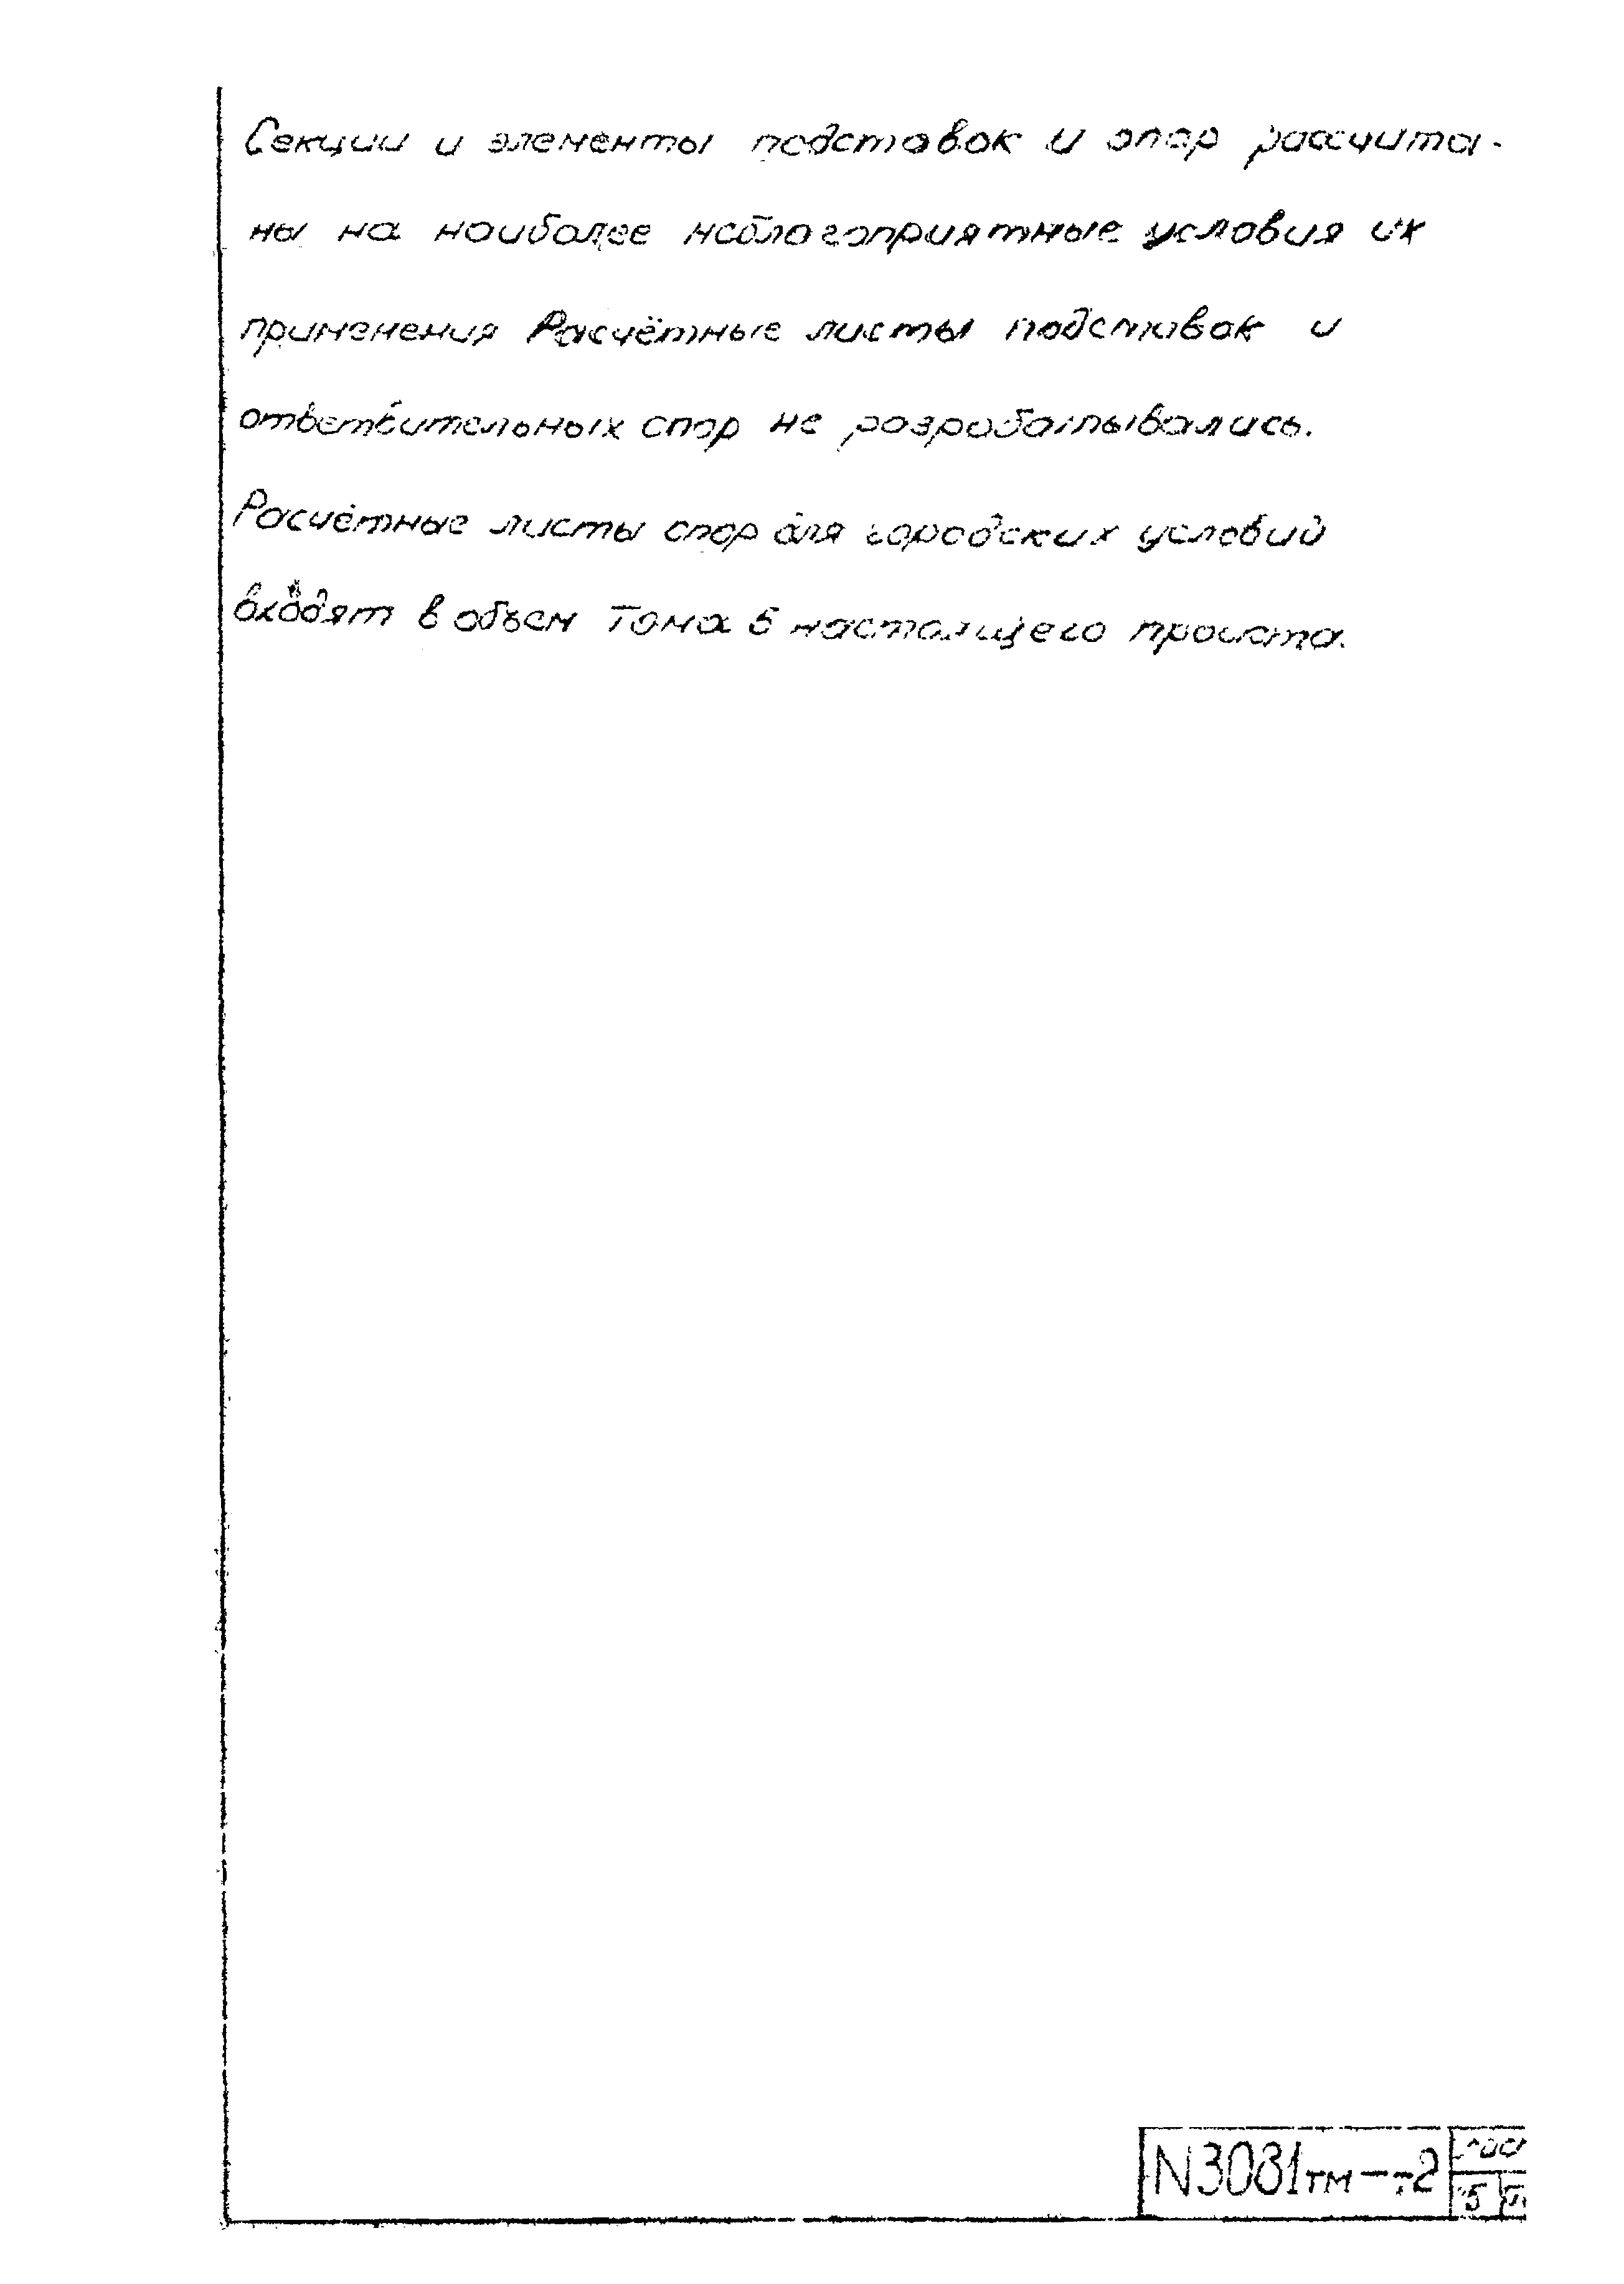 Секции и элементы подставок и опор рассчита-
ны на наиболее неблагоприятные условия их
применения Расчётные листы подставок и
ответвительных опор не разрабатывались.
Расчётные листы опор для городских условий
входят в объем Тома 5 настоящего проекта.
N3081тм-
лист
5